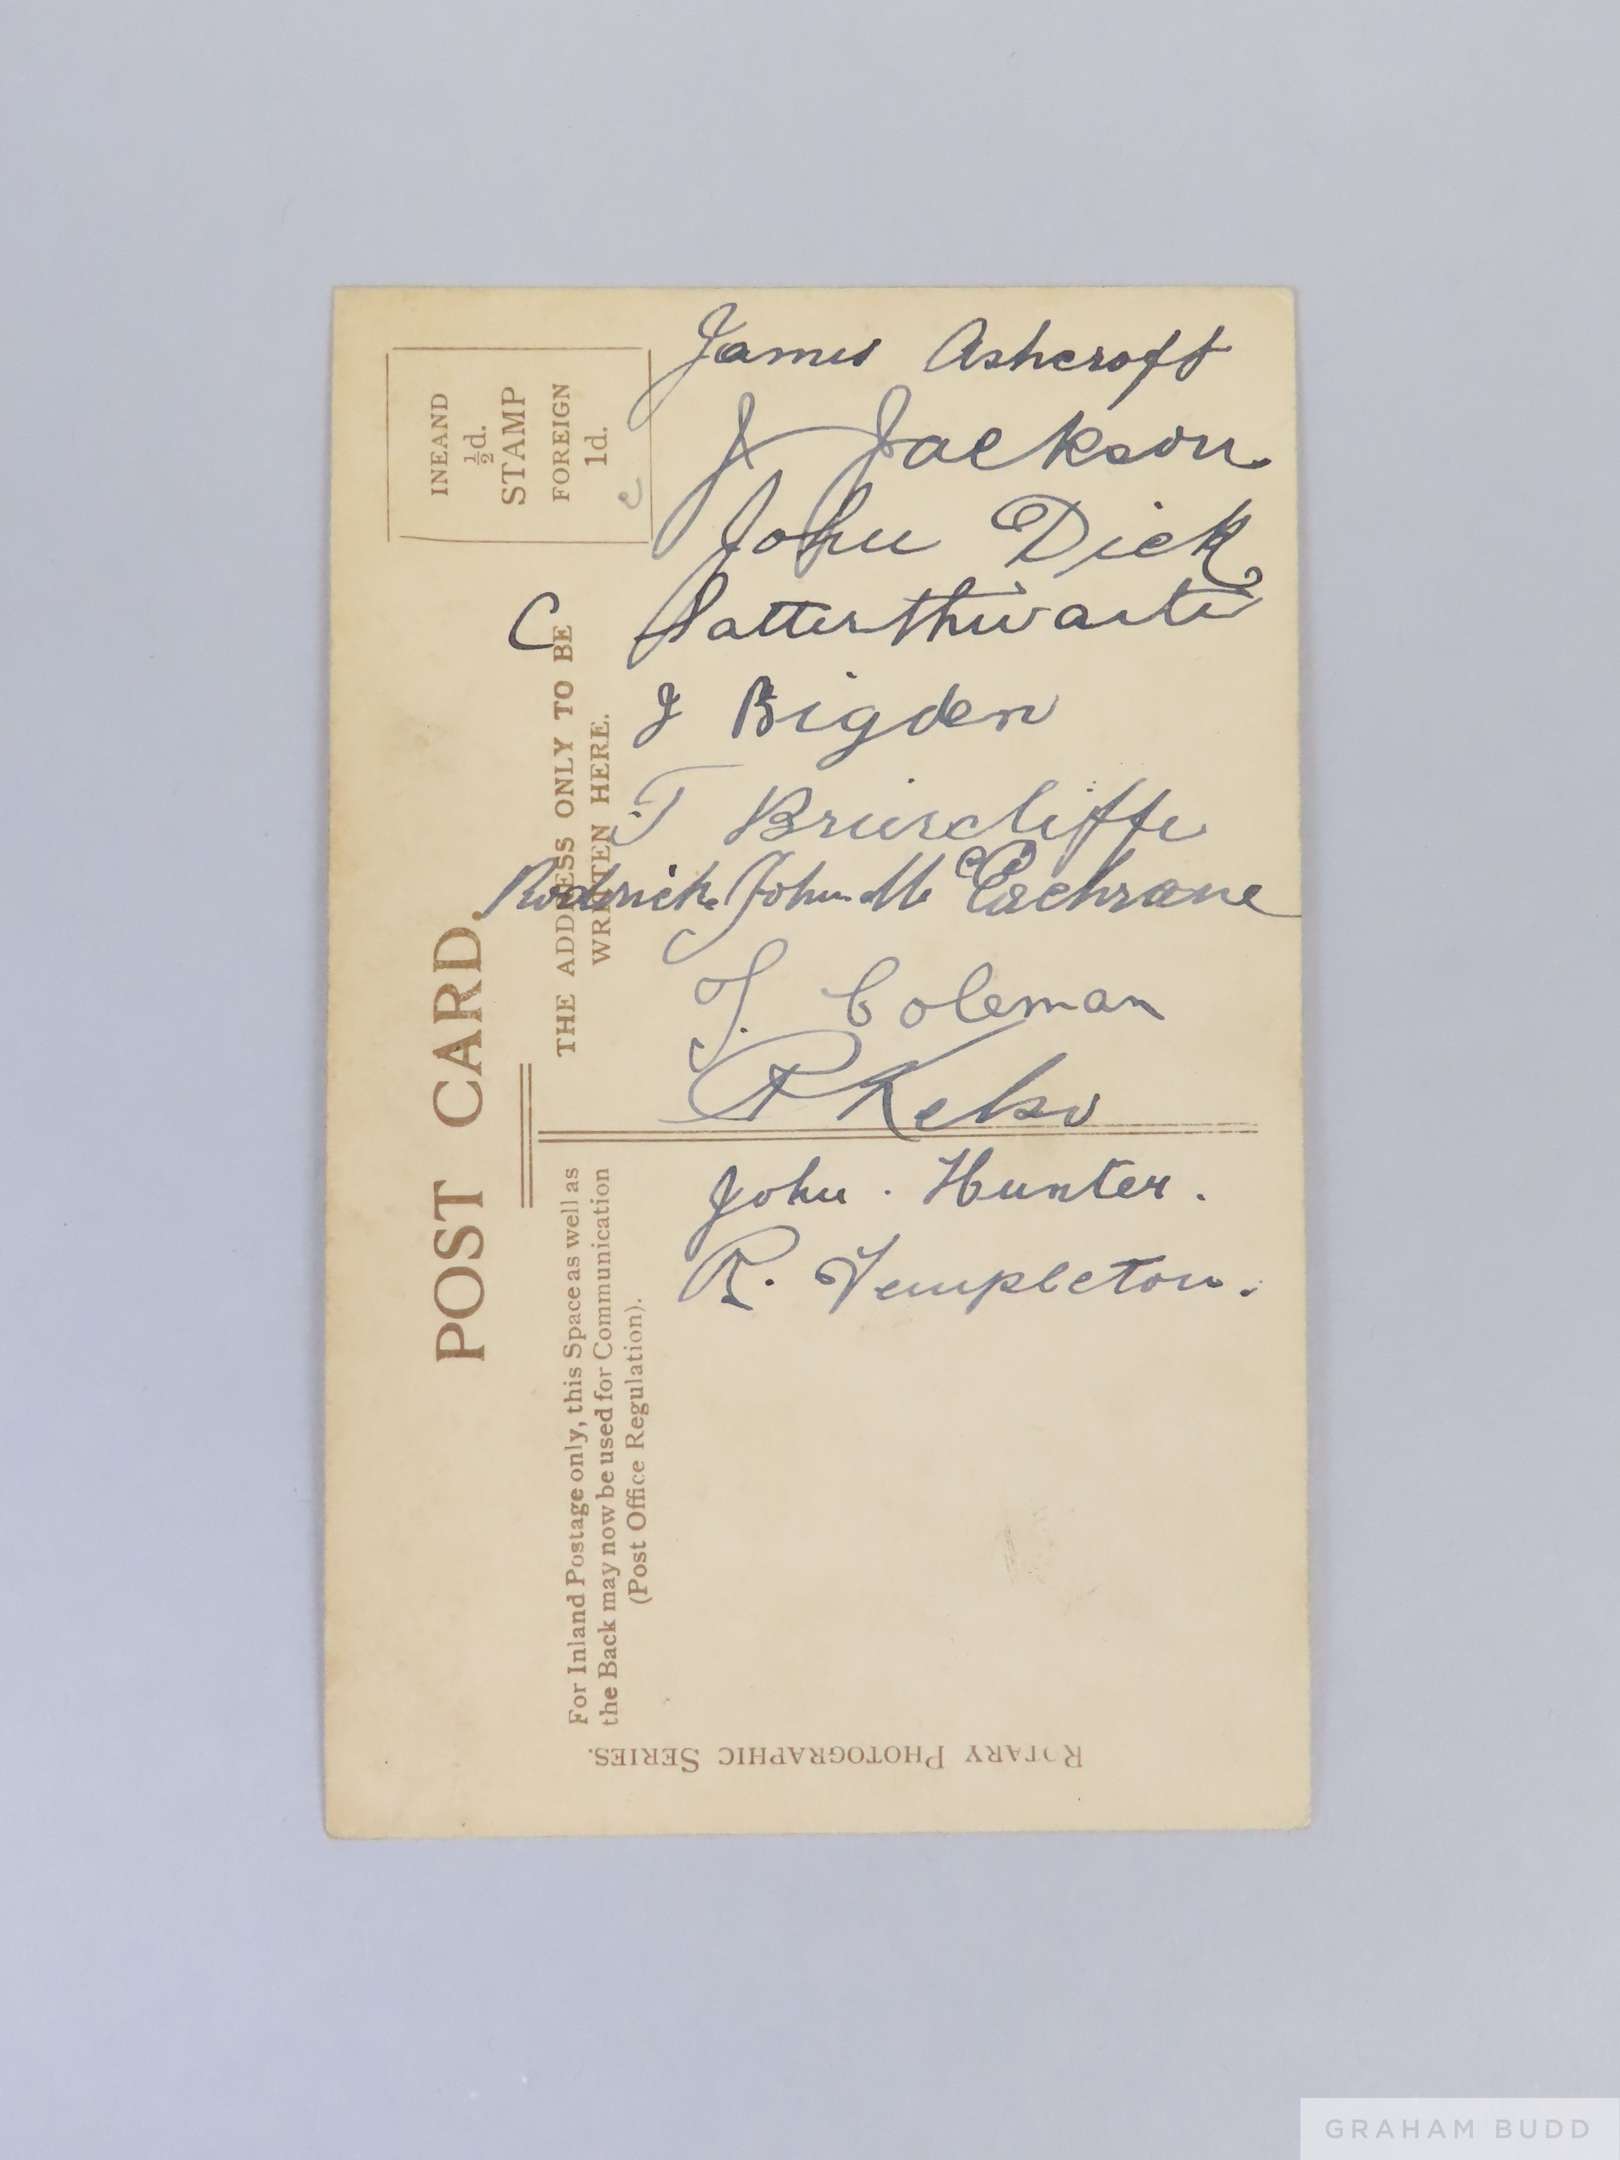 James Ashcroft
J Jackson
John Dick
C Satterthwaite
J Bigden
T Briercliffe
Rodrick John Mc Eachrane
J. Coleman
P Kelso
John. Hunter.
R. Templeton.
POST CARD.
INLAND
½d.
STAMP
FOREIGN
1d.
THE ADDRESS ONLY TO BE
WRITTEN HERE.
For Inland Postage only, this Space as well as
the Back may now be used for Communication
(Post Office Regulation).
ROTARY PHOTOGRAPHIC SERIES.
GRAHAM BUDD